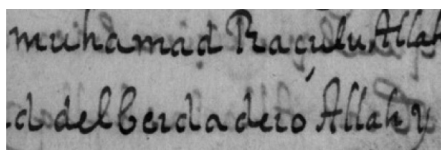 muhamad Raçulu Allah
d del berdadero Allah y